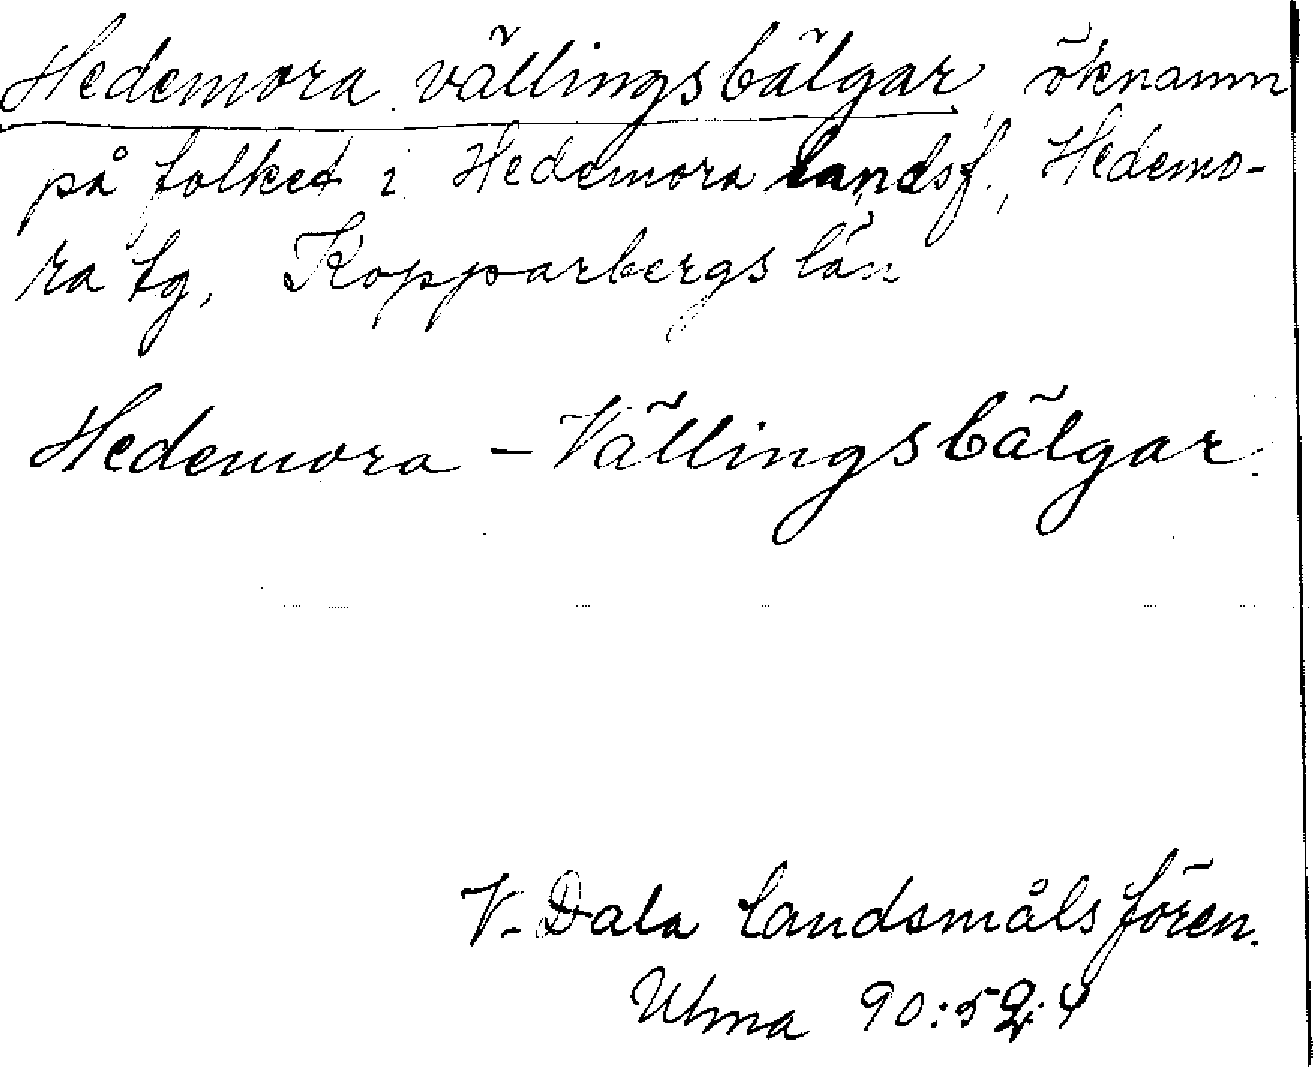 Hedemora vällingsbälgar, öknamn
på folket i Hedemora landsf., Hedemo-
ra tg, Kopparbergs län
Hedemora - Vällingsbälgar.
V. Dala landsmålsfören.
Ulma 90:52:4